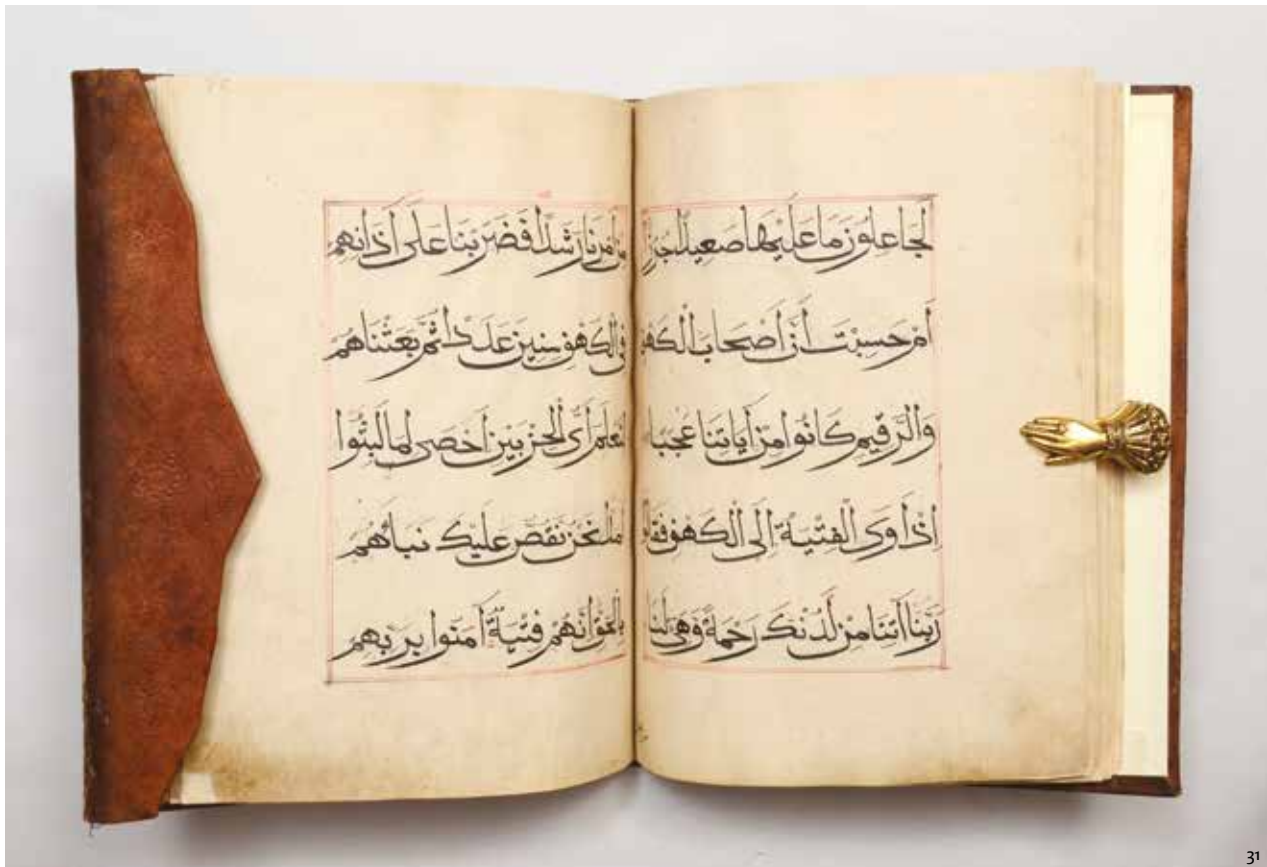 لَجَاعِلُونَ مَا عَلَيْهَا صَعِيدًا جُرُزًا
أَمْ حَسِبْتَ أَنَّ أَصْحَابَ الْكَهْفِ
وَالرَّقِيمِ كَانُوا مِنْ آيَاتِنَا عَجَبًا
إِذْ أَوَى الْفِتْيَةُ إِلَى الْكَهْفِ فَقَالُوا
رَبَّنَا آتِنَا مِنْ لَدُنْكَ رَحْمَةً وَهَيِّئْ لَنَا
مِنْ أَمْرِنَا رَشَدًا فَضَرَبْنَا عَلَى آذَانِهِمْ
فِي الْكَهْفِ سِنِينَ عَدَدًا ثُمَّ بَعَثْنَاهُمْ
لِنَعْلَمَ أَيُّ الْحِزْبَيْنِ أَحْصَى لِمَا لَبِثُوا
أَمَدًا نَحْنُ نَقُصُّ عَلَيْكَ نَبَأَهُمْ
بِالْحَقِّ إِنَّهُمْ فِتْيَةٌ آمَنُوا بِرَبِّهِمْ
31